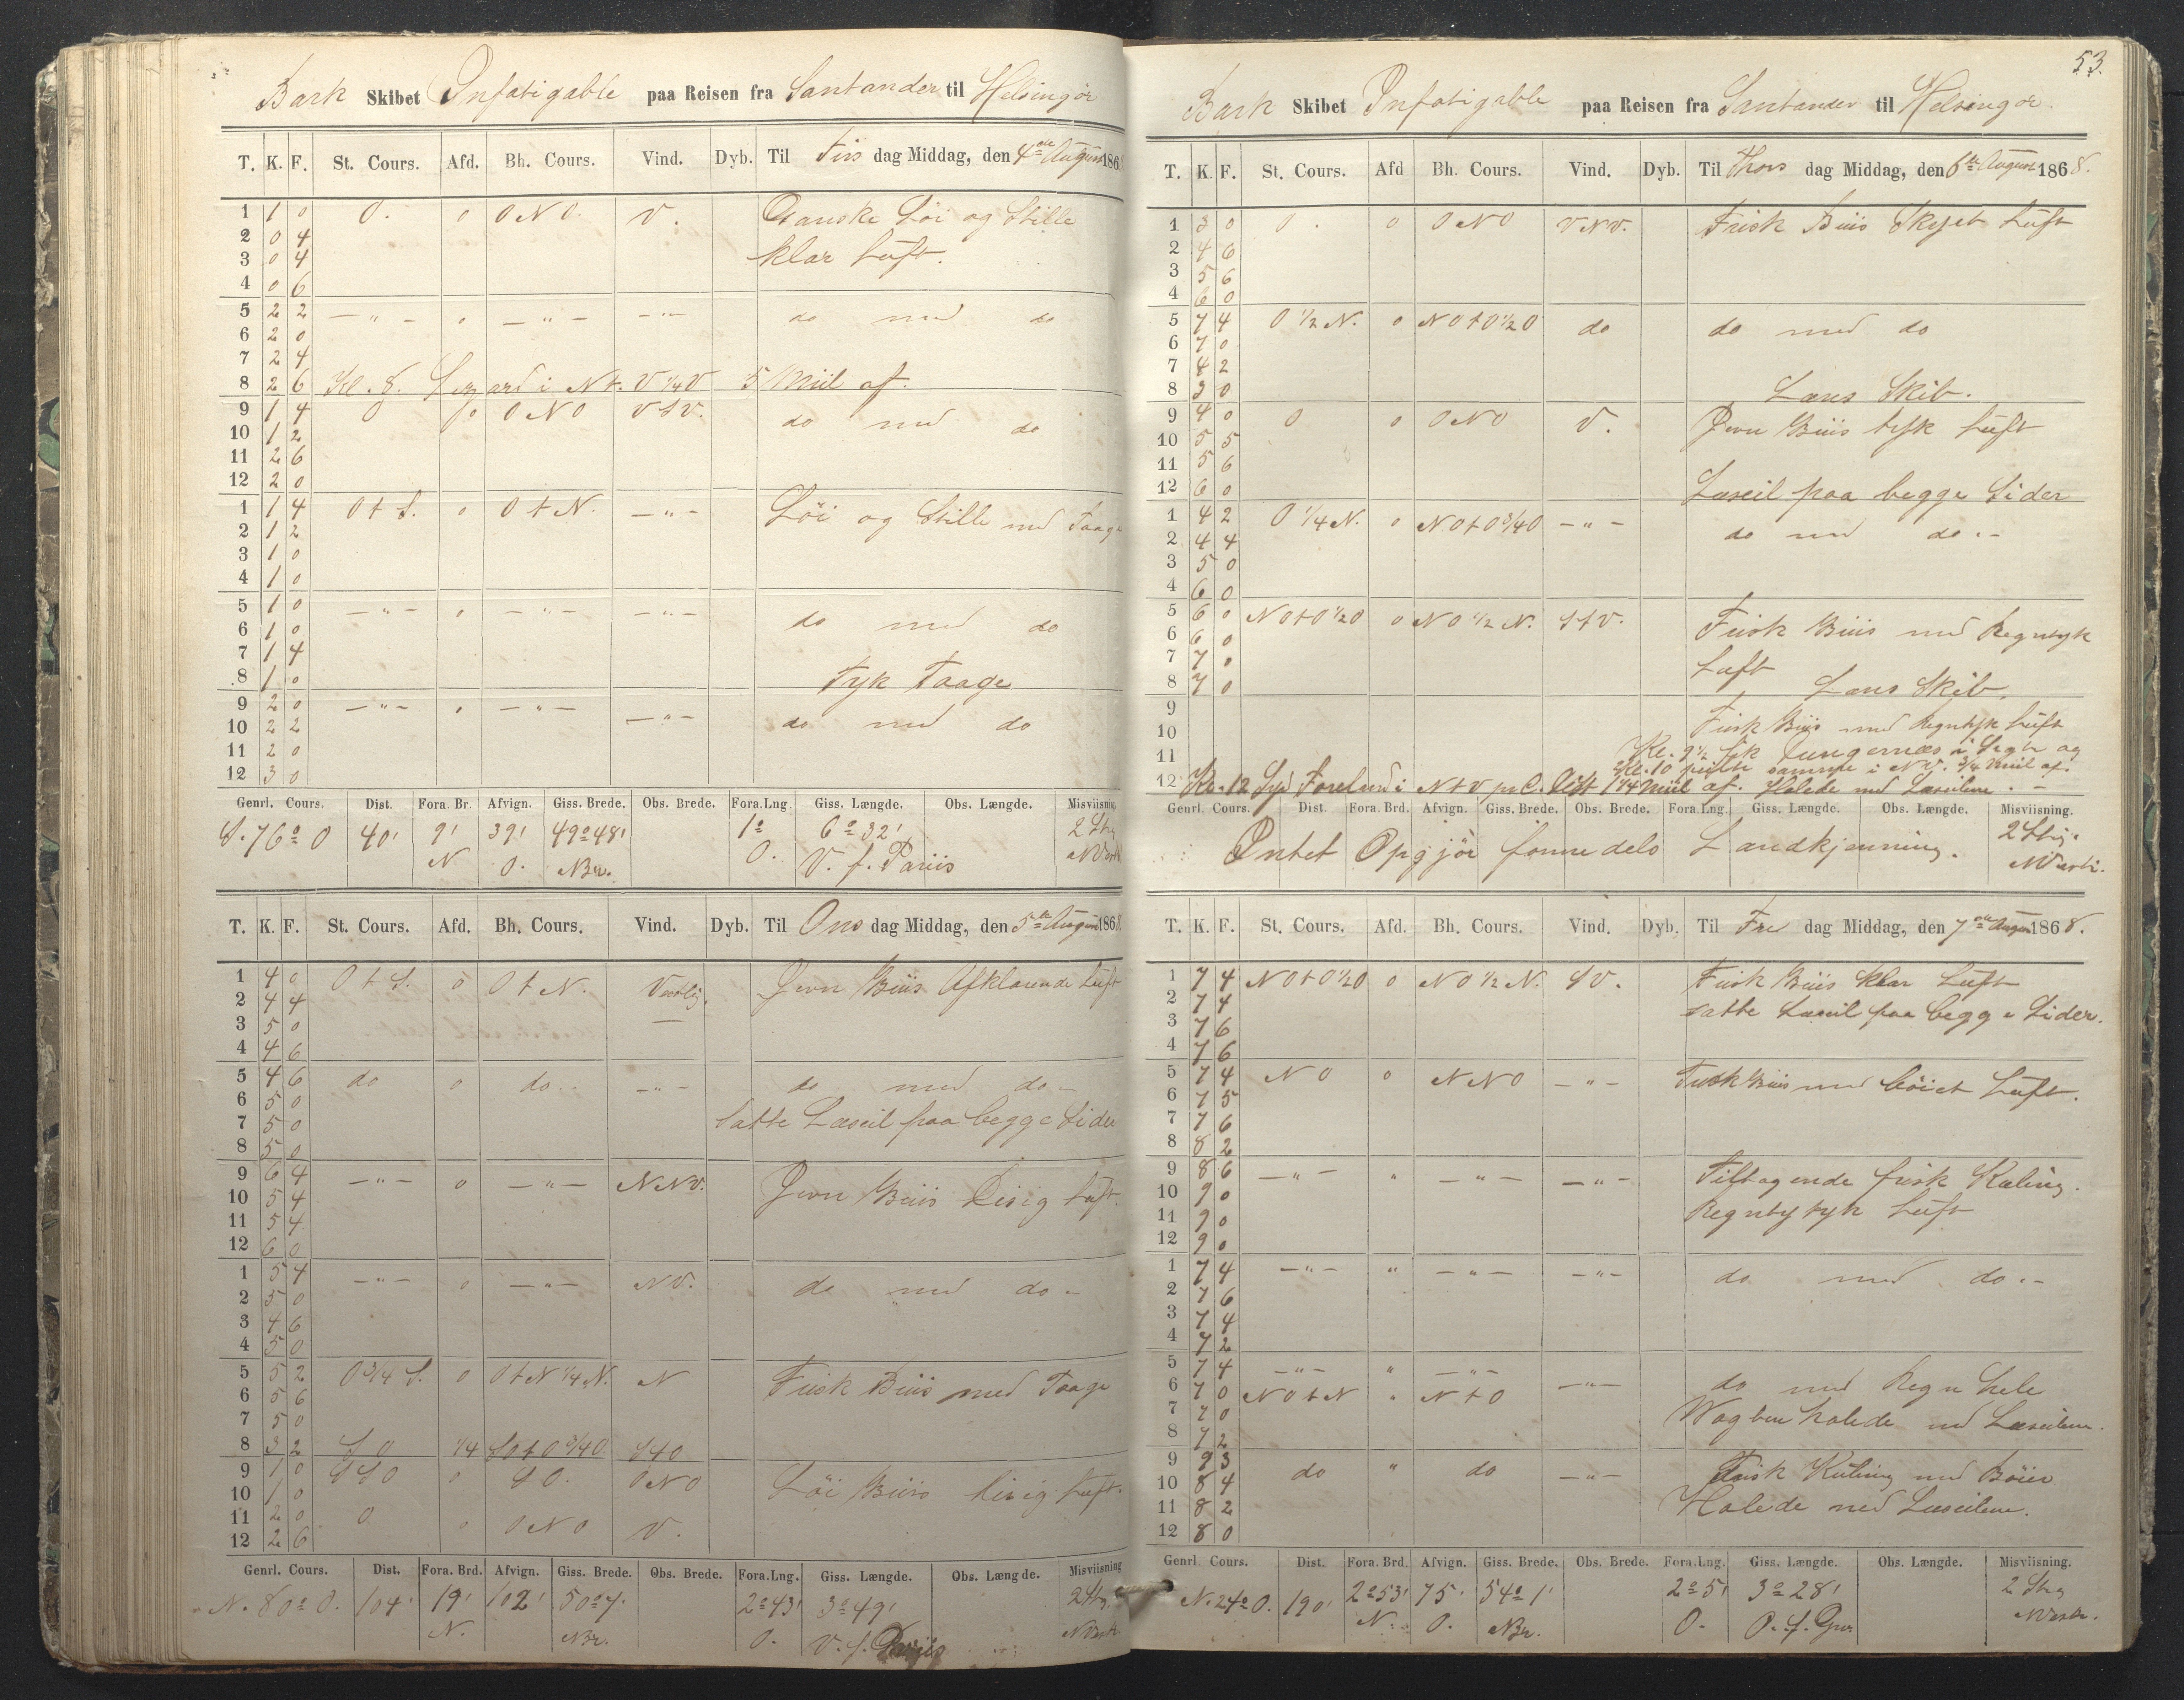 Bark Skibet Infatigable paa Reisen fra Santander til Helsingör
T. K. F. St. Cours. Afd. Bh. Cours. Vind. Dyb. Til Tirs dag Middag, den 4de August 1868
1 1 0 O. 0 ONO. V. Ganske Löi og Stille
2 0 4 klar Luft.
3 0 4
4 0 6
5 2 2 — " — 0 — " — — " — do med do
6 2 0
7 2 4
8 2 6 Kl. 8. Lezard i Nt. V 1/4 V 5 Miil af.
9 1 4 O 0 ONO VSV. do med do
10 1 2
11 2 6
12 2 0
1 1 4 O t S. 0 O t N. — " — Löi og Stille med Taage
2 1 2
3 1 0
4 1 0
5 1 0 — " — 0 — " — — " — do med do
6 1 0
7 1 4
8 1 0 Tyk Taage
9 2 0 — " — 0 — " — — " — do med do
10 2 2
11 2 0
12 3 0
Genrl. Cours. Dist. Fora. Br. Afvign. Giss. Brede. Obs. Brede. Fora.Lng. Giss. Længde. Obs. Længde. Misviisning
S. 76° O 40' 9' 39' 49° 48' 1° 6° 32' 2 Stg
N O. NBr. O. V. f. Pariis NVestl
T. K. F. St. Cours. Afd. Bh. Cours. Vind. Dyb. Til Ons dag Middag, den 5te August 1868
1 4 0 O t S. 0 O t N. Vestlig. Jevn Briis Afklarende Luft
2 4 4
3 5 0
4 4 6
5 4 6 do 0 do.. — " — do med do –
6 5 0 Satte Læseil paa begge Sider
7 5 0
8 5 0
9 6 4 — " — 0 — " — NNV. Jevn Briis Disig Luft.
10 5 4
11 5 4
12 6 0
1 5 4 — " — 0 — " — NV. do med do –
2 5 0
3 4 6
4 5 0
5 5 2 O 3/4 S. 0 O t N 1/4 N. N Frisk Briis med Taage
6 5 6
7 5 0
8 3 2 SO 1/4 SO t O 3/4 O. StO
9 1 0 SSO 0 SO. ONO Löi Briis disig Luft.
10 1 0
11 2 0 O 0 ONO V.
12 2 6
Genrl. Cours. Dist. Fora. Brd. Afvign. Giss. Brede. Obs. Brede. Fora.Lng. Giss. Længde. Obs. Længde. Misviisning
N. 80° O. 104' 19' 102' 50° 7' 2° 43' 3° 49' 2 Stg.
N. NBr. O. V. f. Pariis NVestl
53.
Bark Skibet Infatigable paa Reisen fra Santander til Helsingör.
T. K. F. St. Cours. Afd Bh. Cours. Vind. Dyb. Til Thors dag Middag, den 6te August 1868.
1 3 0 O. 0 ONO VNV. Frisk Briis Skyet Luft
2 4 6
3 5 6
4 6 0
5 7 4 O 1/2 N. 0 NO t O 1/2 O do do med do
6 7 0
7 4 2
8 3 0 Læns Skib.
9 4 0 O 0 ONO V. Jevn Briis tyk Luft
10 5 5
11 5 6
12 6 0 Læseil paa begge Sider
1 4 2 O 1/4 N. 0 NO t O 3/4 O — " — do med do. –
2 4 4
3 5 0
4 6 0
5 6 0 NO t O 1/2 O 0 NO 1/2 N. StV. Frisk Briis med Regntyk
6 6 0
7 7 0 Luft
8 7 0 Læns Skib.
9 Frisk Briis med Regntyk Luft
10 Kl. 9 1/2 fik Dungernæs i Sigte og
11 Kl. 10 peilte samme i NV. 3/4 Miil af.
12 Kl. 12 Syd Foreland i NtV pr C. Dist 1 1/4 Miil af. Halede ned Læseilene. –
Genrl. Cours. Dist. Fora. Brd. Afvign. Giss. Brede. Obs. Brede. Fora.Lng. Giss. Længde. Obs. Længde. Misviisning.
Intet Opgjör formedels Landkjenning. 2 Stg.
NVestl.
T. K. F. St. Cours. Afd. Bh. Cours. Vind. Dyb. Til Fre dag Middag, den 7de August 1868.
1 7 4 NO t O 1/2 O 0 NO 1/2 N. SV. Frisk Briis klar Luft
2 7 4 satte Læseil paa begge Sider.
3 7 6
4 7 6
5 7 4 NO 0 NNO — " — Frisk Briis med böiet Luft.
6 7 5
7 7 6
8 8 2
9 8 6 — " — " — " — — " — Tiltagende frisk Kuling.
10 9 0
11 9 0 Regnbytyk Luft
12 9 0
1 7 4 — " — " — " — — " — do med do. –
2 7 6
3 7 4
4 7 2
5 7 4 — " — " — " —
6 7 0 NO t N " N t O — " — do med Regn hele
7 7 0 Vagten halede ned Læseilene.
8 7 2
9 9 3 do " do — " — Frisk Kuling med Böier
10 8 4
11 8 2 Halede ned Læseilene.
12 8 0
Genrl. Cours. Dist. Fora. Brd. Afvign. Giss. Brede. Obs. Brede. Fora.Lng. Giss. Længde. Obs. Længde. Misviisning.
N. 24° O. 190' 2° 53' 75' 54° 1' 2° 5' 3° 28' 2 Stg
N. O. NBr. O. O. f. Grw NVestl.